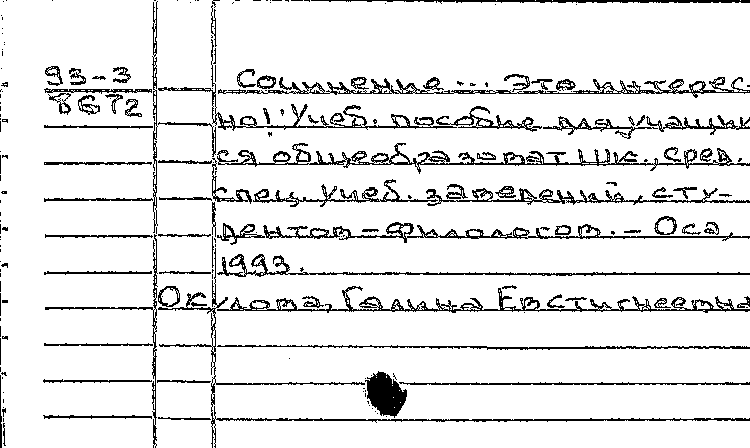 93-3
8672
Сочинение... Это интерес-
но!: Учеб. пособие для учащих-
ся общеобразоват. шк., сред.
спец. учеб. заведений, сту-
дентов-филологов. - Оса,
1993.
Окулова, Галина Евстигнеевна